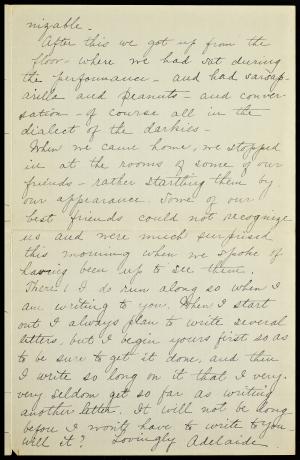 nizable.
After this we got up from the
floor - where we had sat during
the performance - and had sarsap-
arilla and peanuts - and conver-
sation - of course all in the
dialect of the darkies -
When we came home, we stopped
in at the rooms of some of our
friends - rather startling them by
our appearance. Some of our
best friends could not recognize
us and were much surprised
this morning when we spoke of
having been up to see them.
There! I do run along so when I
am writing to you. When I start
out I always plan to write several
letters, but I begin yours first so as
to be sure to get it done, and then
I write so long on it that I very-
very seldom get so far as writing
another letter. It will not be long
before I won't have to write to you
will it? Lovingly Adelaide.